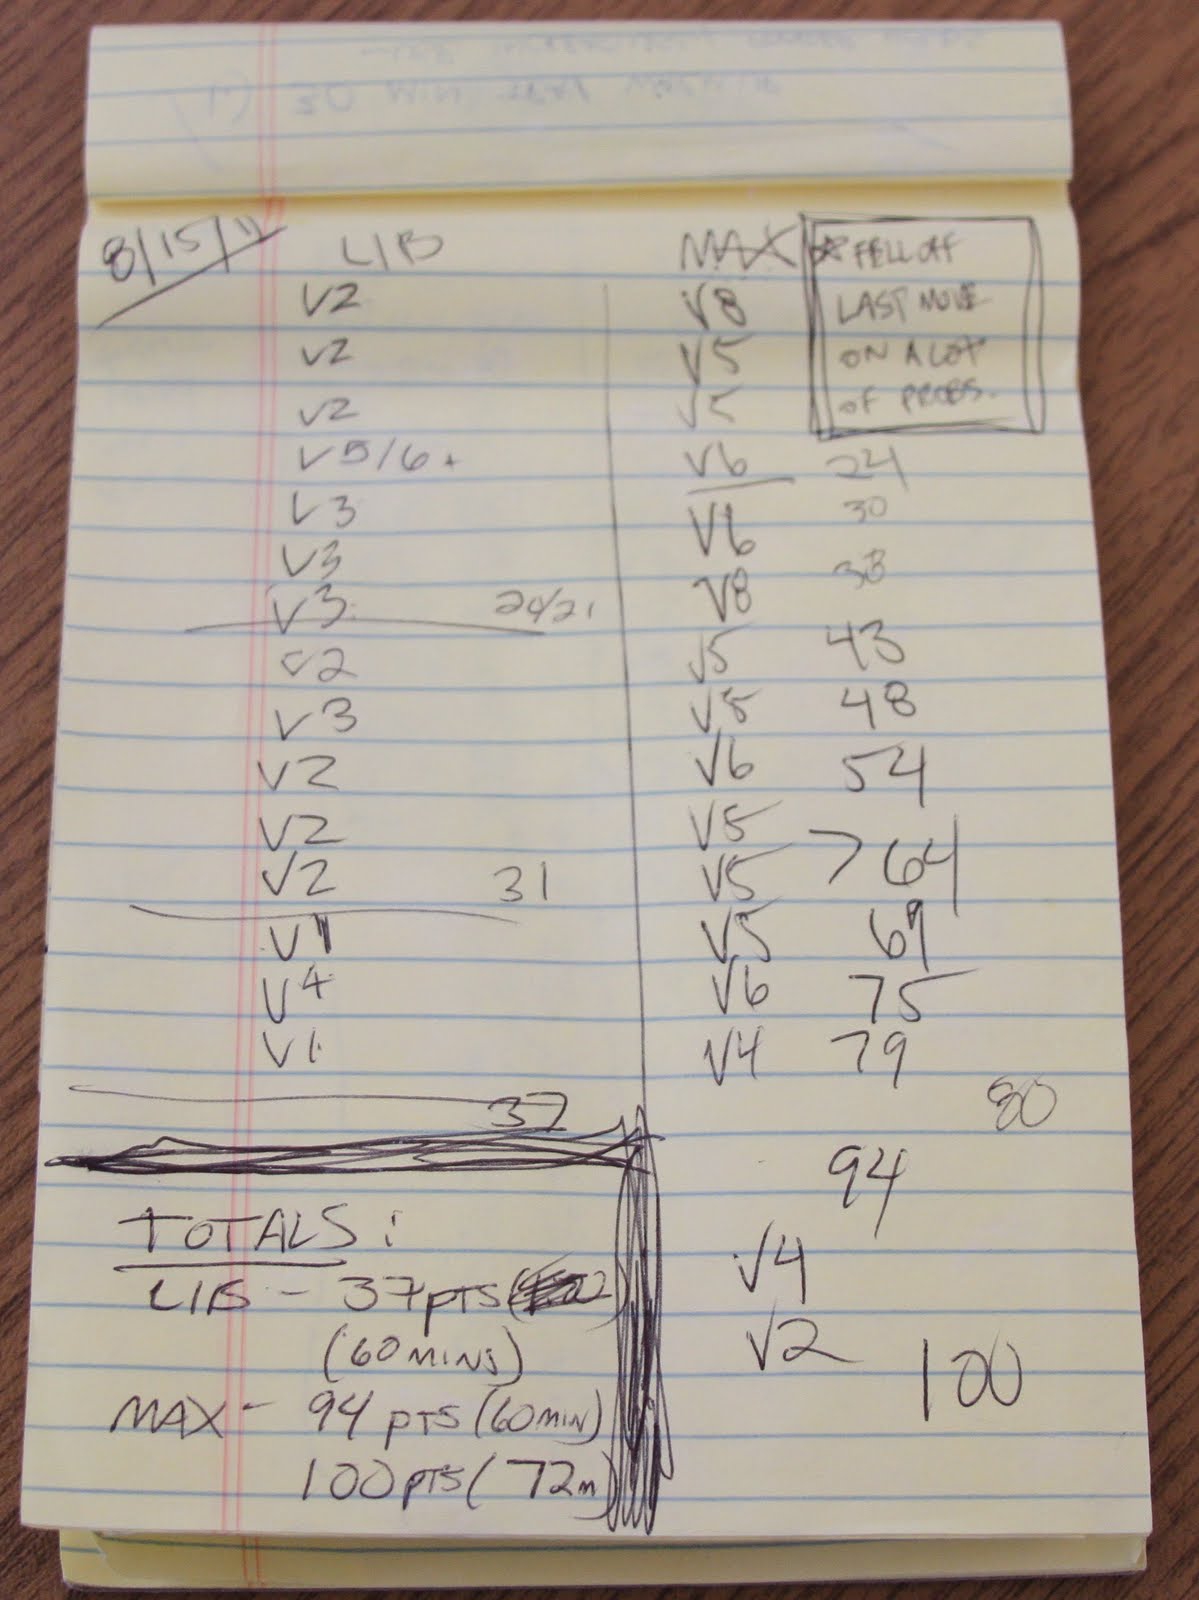 1.) 30 MIN
8/15/11 LIB MAX * FELL OFF
V2 V8 LAST MOVE
V2 V5 ON A LOT
V2 V5 OF PROBS.
V5/6+ V6 24
V3 V6 30
V3 V8 38
V3 24/21 V5 43
V2 V5 48
V3 V6 54
V2 V5
V2 V5 > 64
V2 31 V5 69
V1 V6 75
V4 V4 79
V1
37 80
94
TOTALS: V4
LIB - 37 PTS V2
(60 MINS) 100
MAX - 94 PTS (60 MIN)
100 PTS (72m)